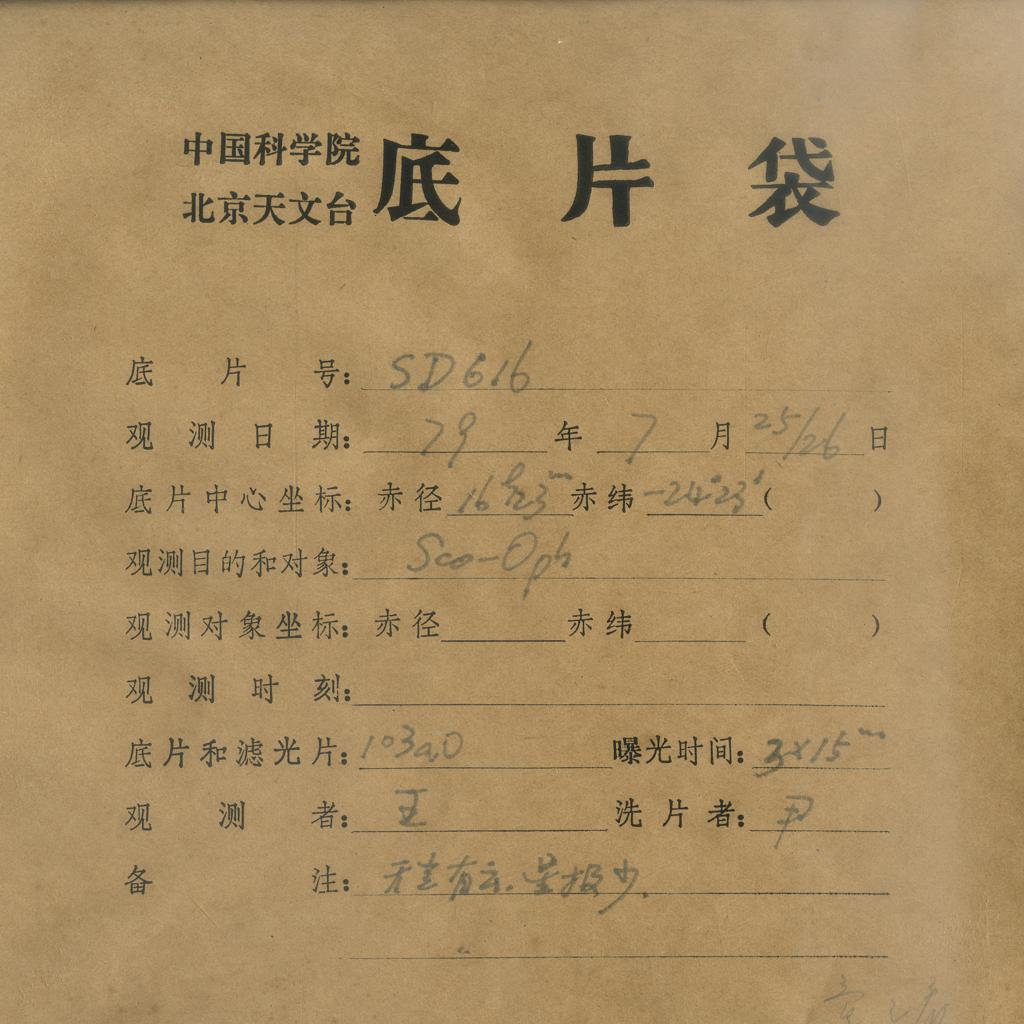 中国科学院
北京天文台
底片袋
底片号: SD616
观测日期: 79 年 7 月 25/26 日
底片中心坐标: 赤径 16h23m 赤纬 -24°23′ ( )
观测目的和对象: Sco-Oph
观测对象坐标: 赤径 赤纬 ( )
观测时刻:
底片和滤光片: 103aO 曝光时间: 3×15m
观测者: 王 洗片者: 尹
备注: 有云. 星极少.